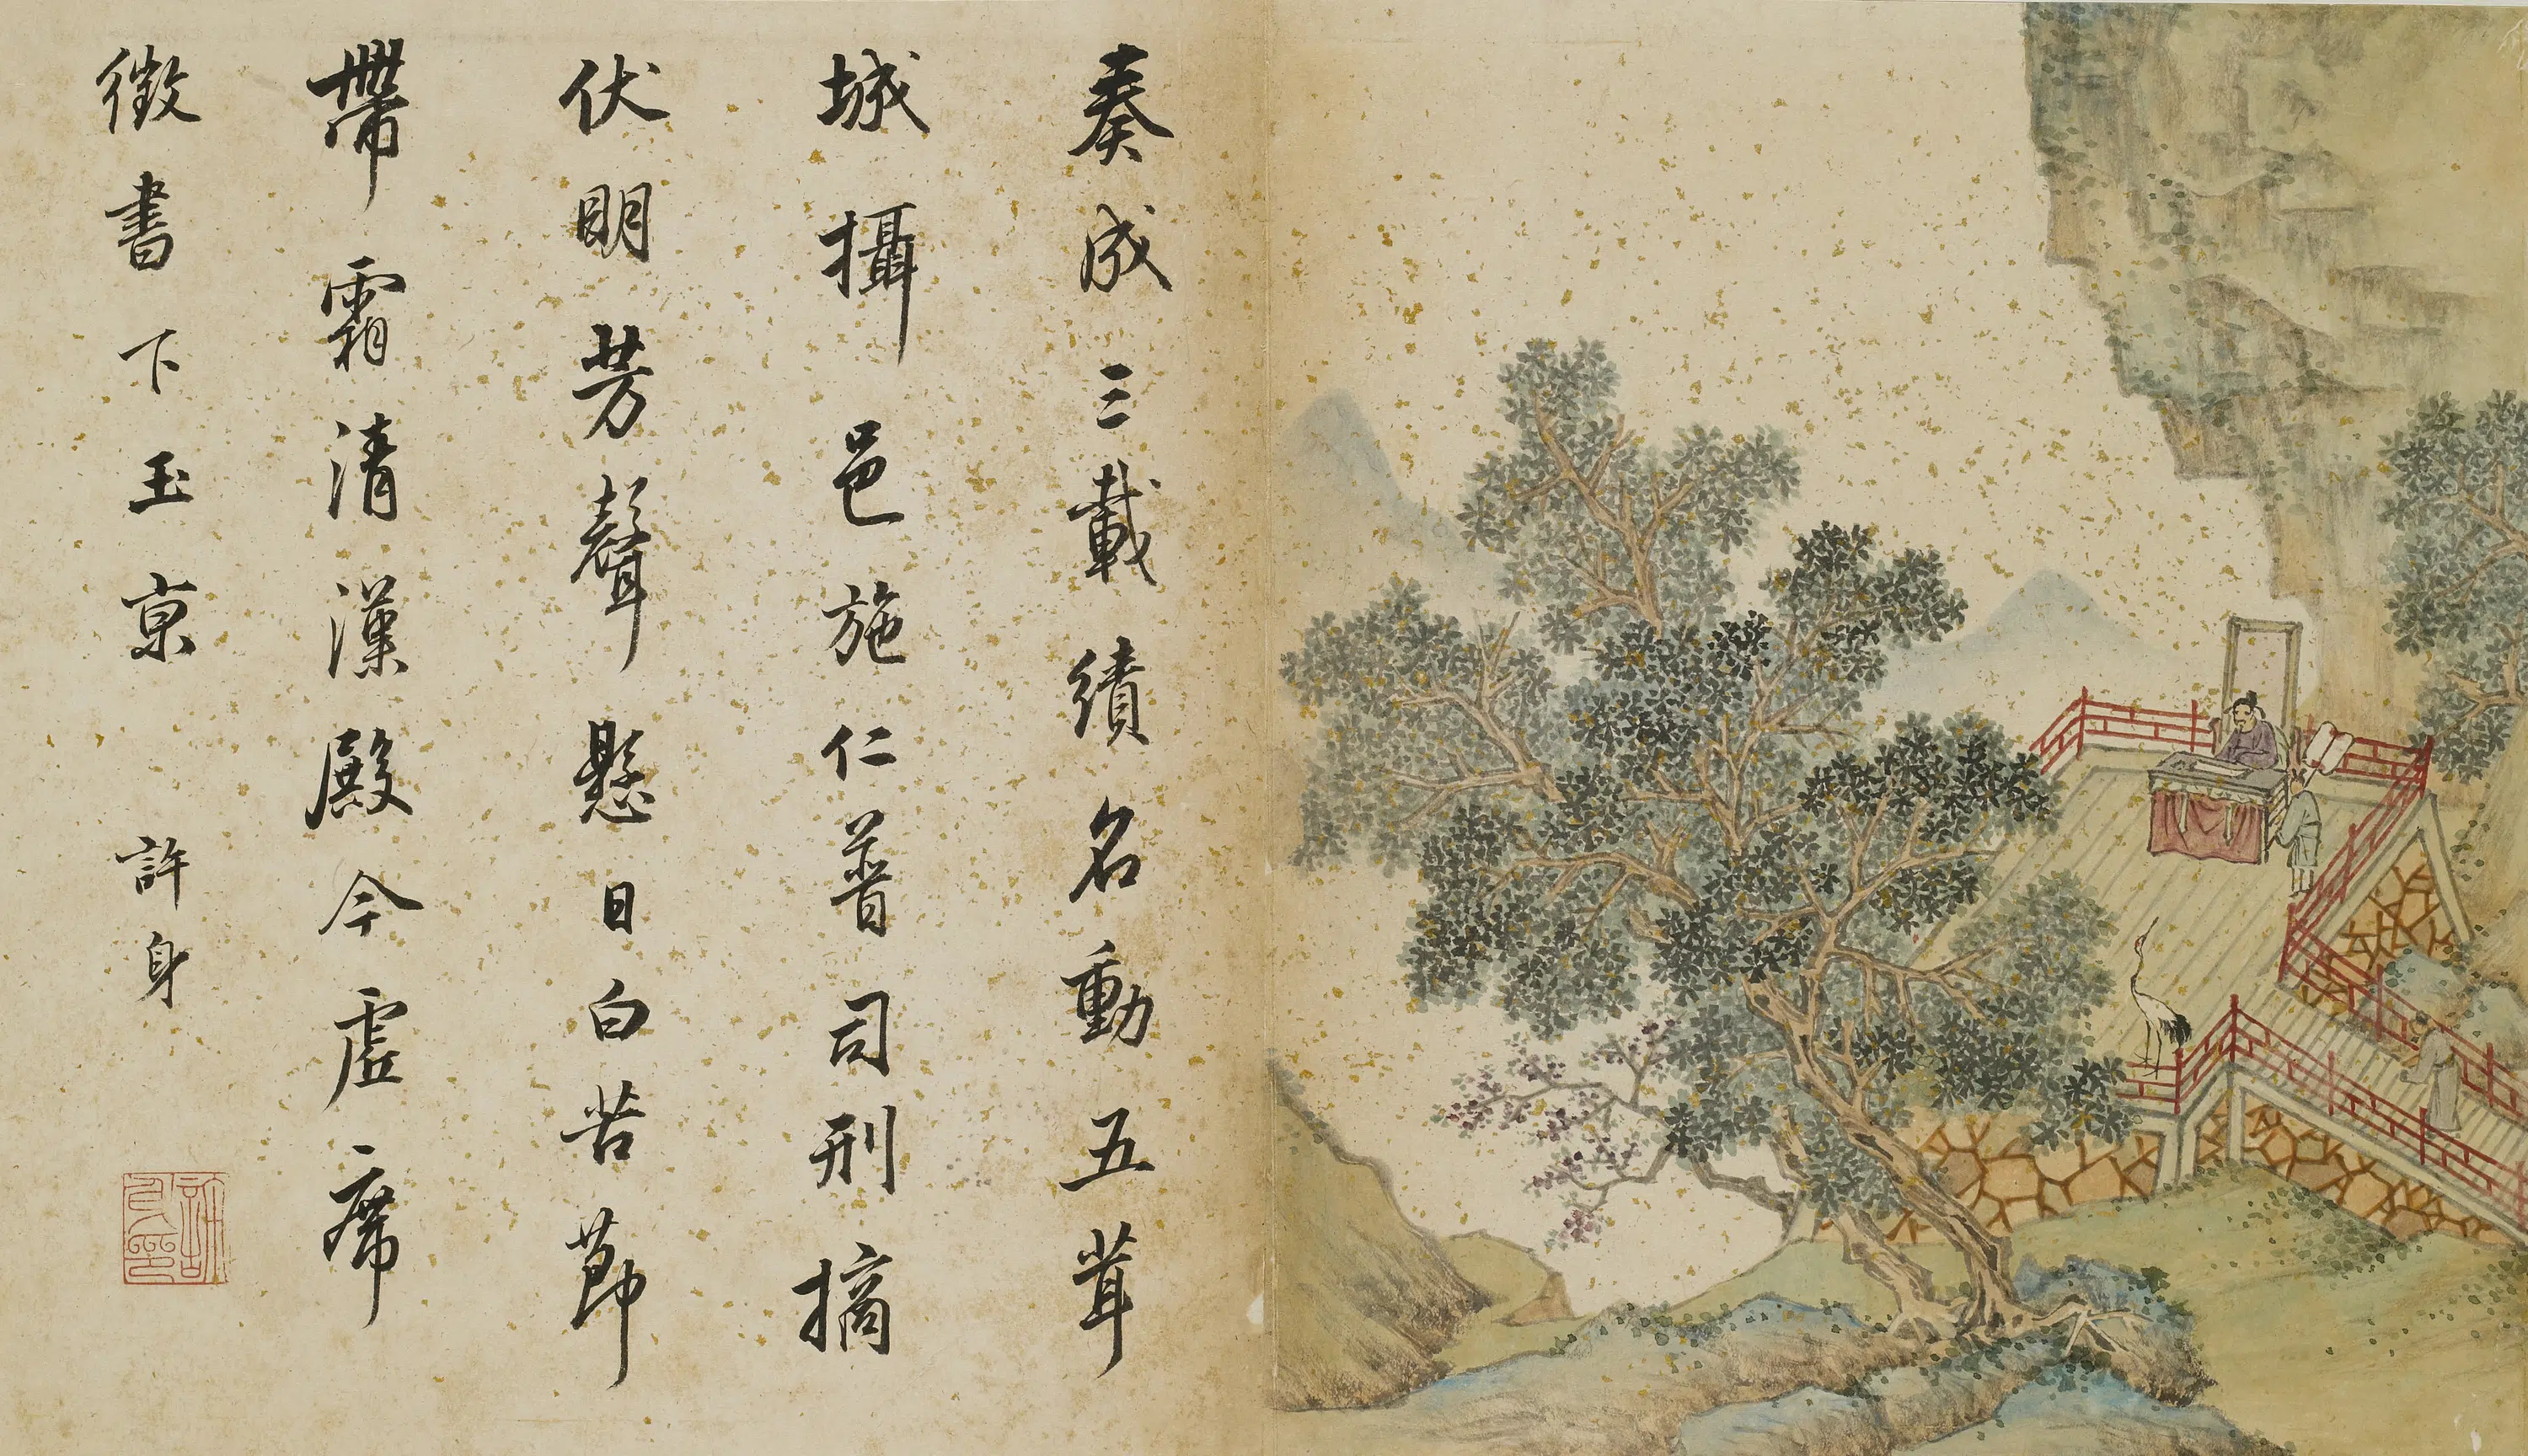 奏成三載績名動五茸
城攝邑施仁普司刑摘
伏明芳聲懸日白苦節
帶霜清漢殿今虛席
徵書下玉京 許身